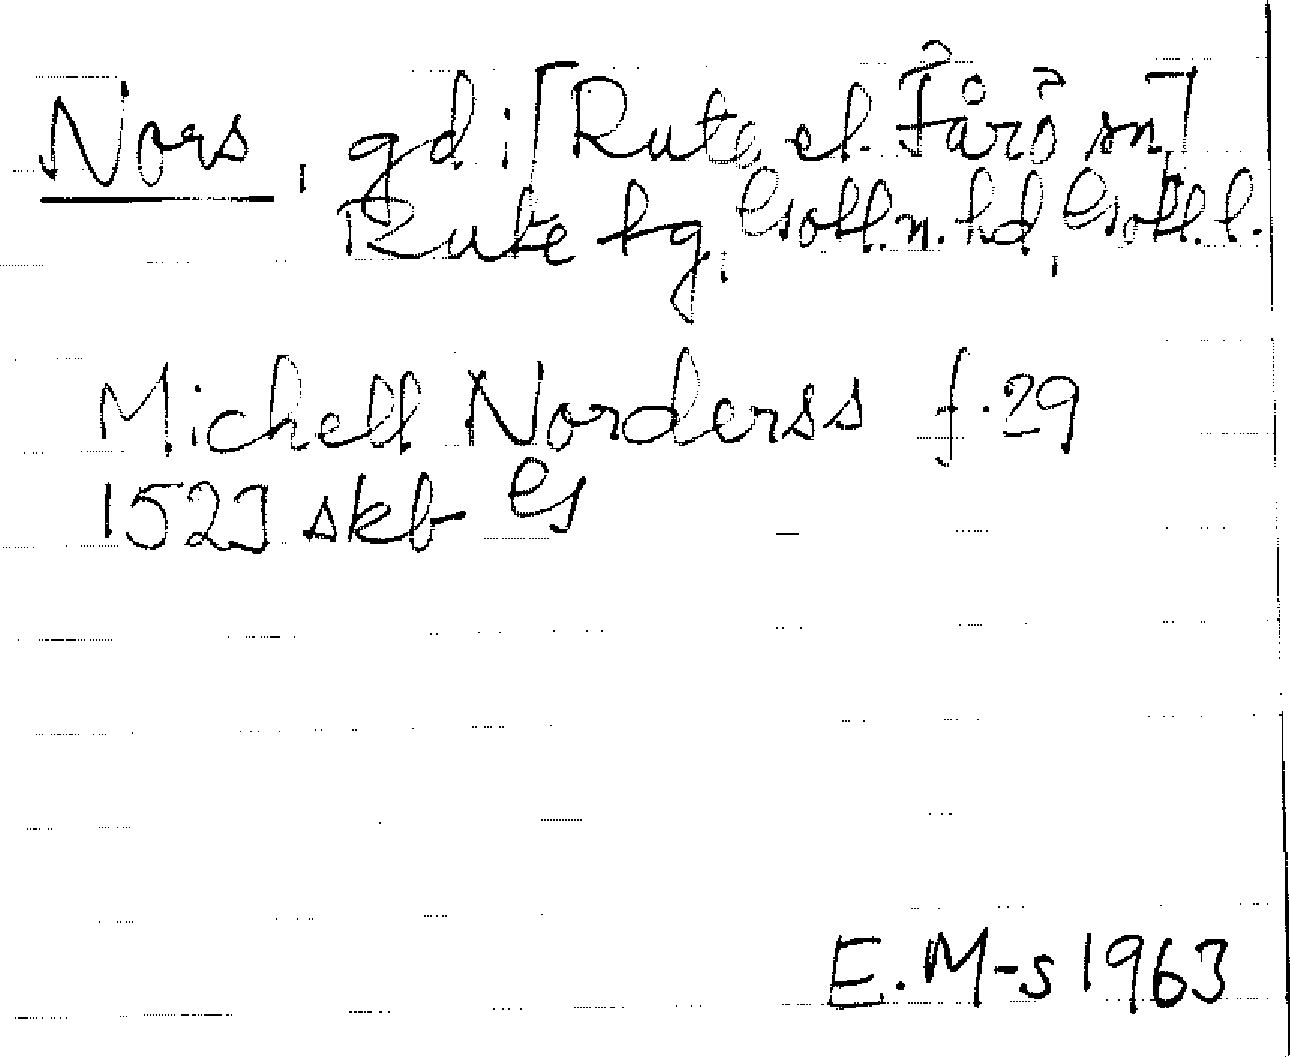 Nors, gd i [Rute el. Fårö sn]
Rute tg, Gotl. n. hd, Gotl. l.
Michell Norderss f. 29
1523 skb G
E. M-s 1963